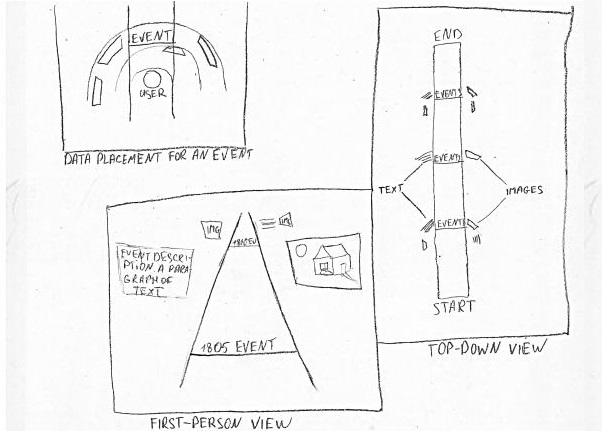 EVENT
USER
DATA PLACEMENT FOR AN EVENT
END
EVENT3
EVENT2
TEXT
IMAGES
EVENT1
START
TOP-DOWN VIEW
IMG
IMG
EVENT DESCRI-
PTION. A PARA-
GRAPH OF
TEXT
1805 EVENT
FIRST-PERSON VIEW